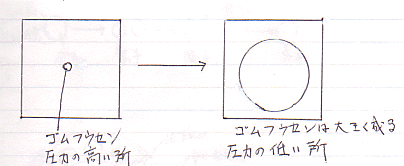 ゴムフウセン
圧力の高い所
ゴムフウセンは大きく成る
圧力の低い所